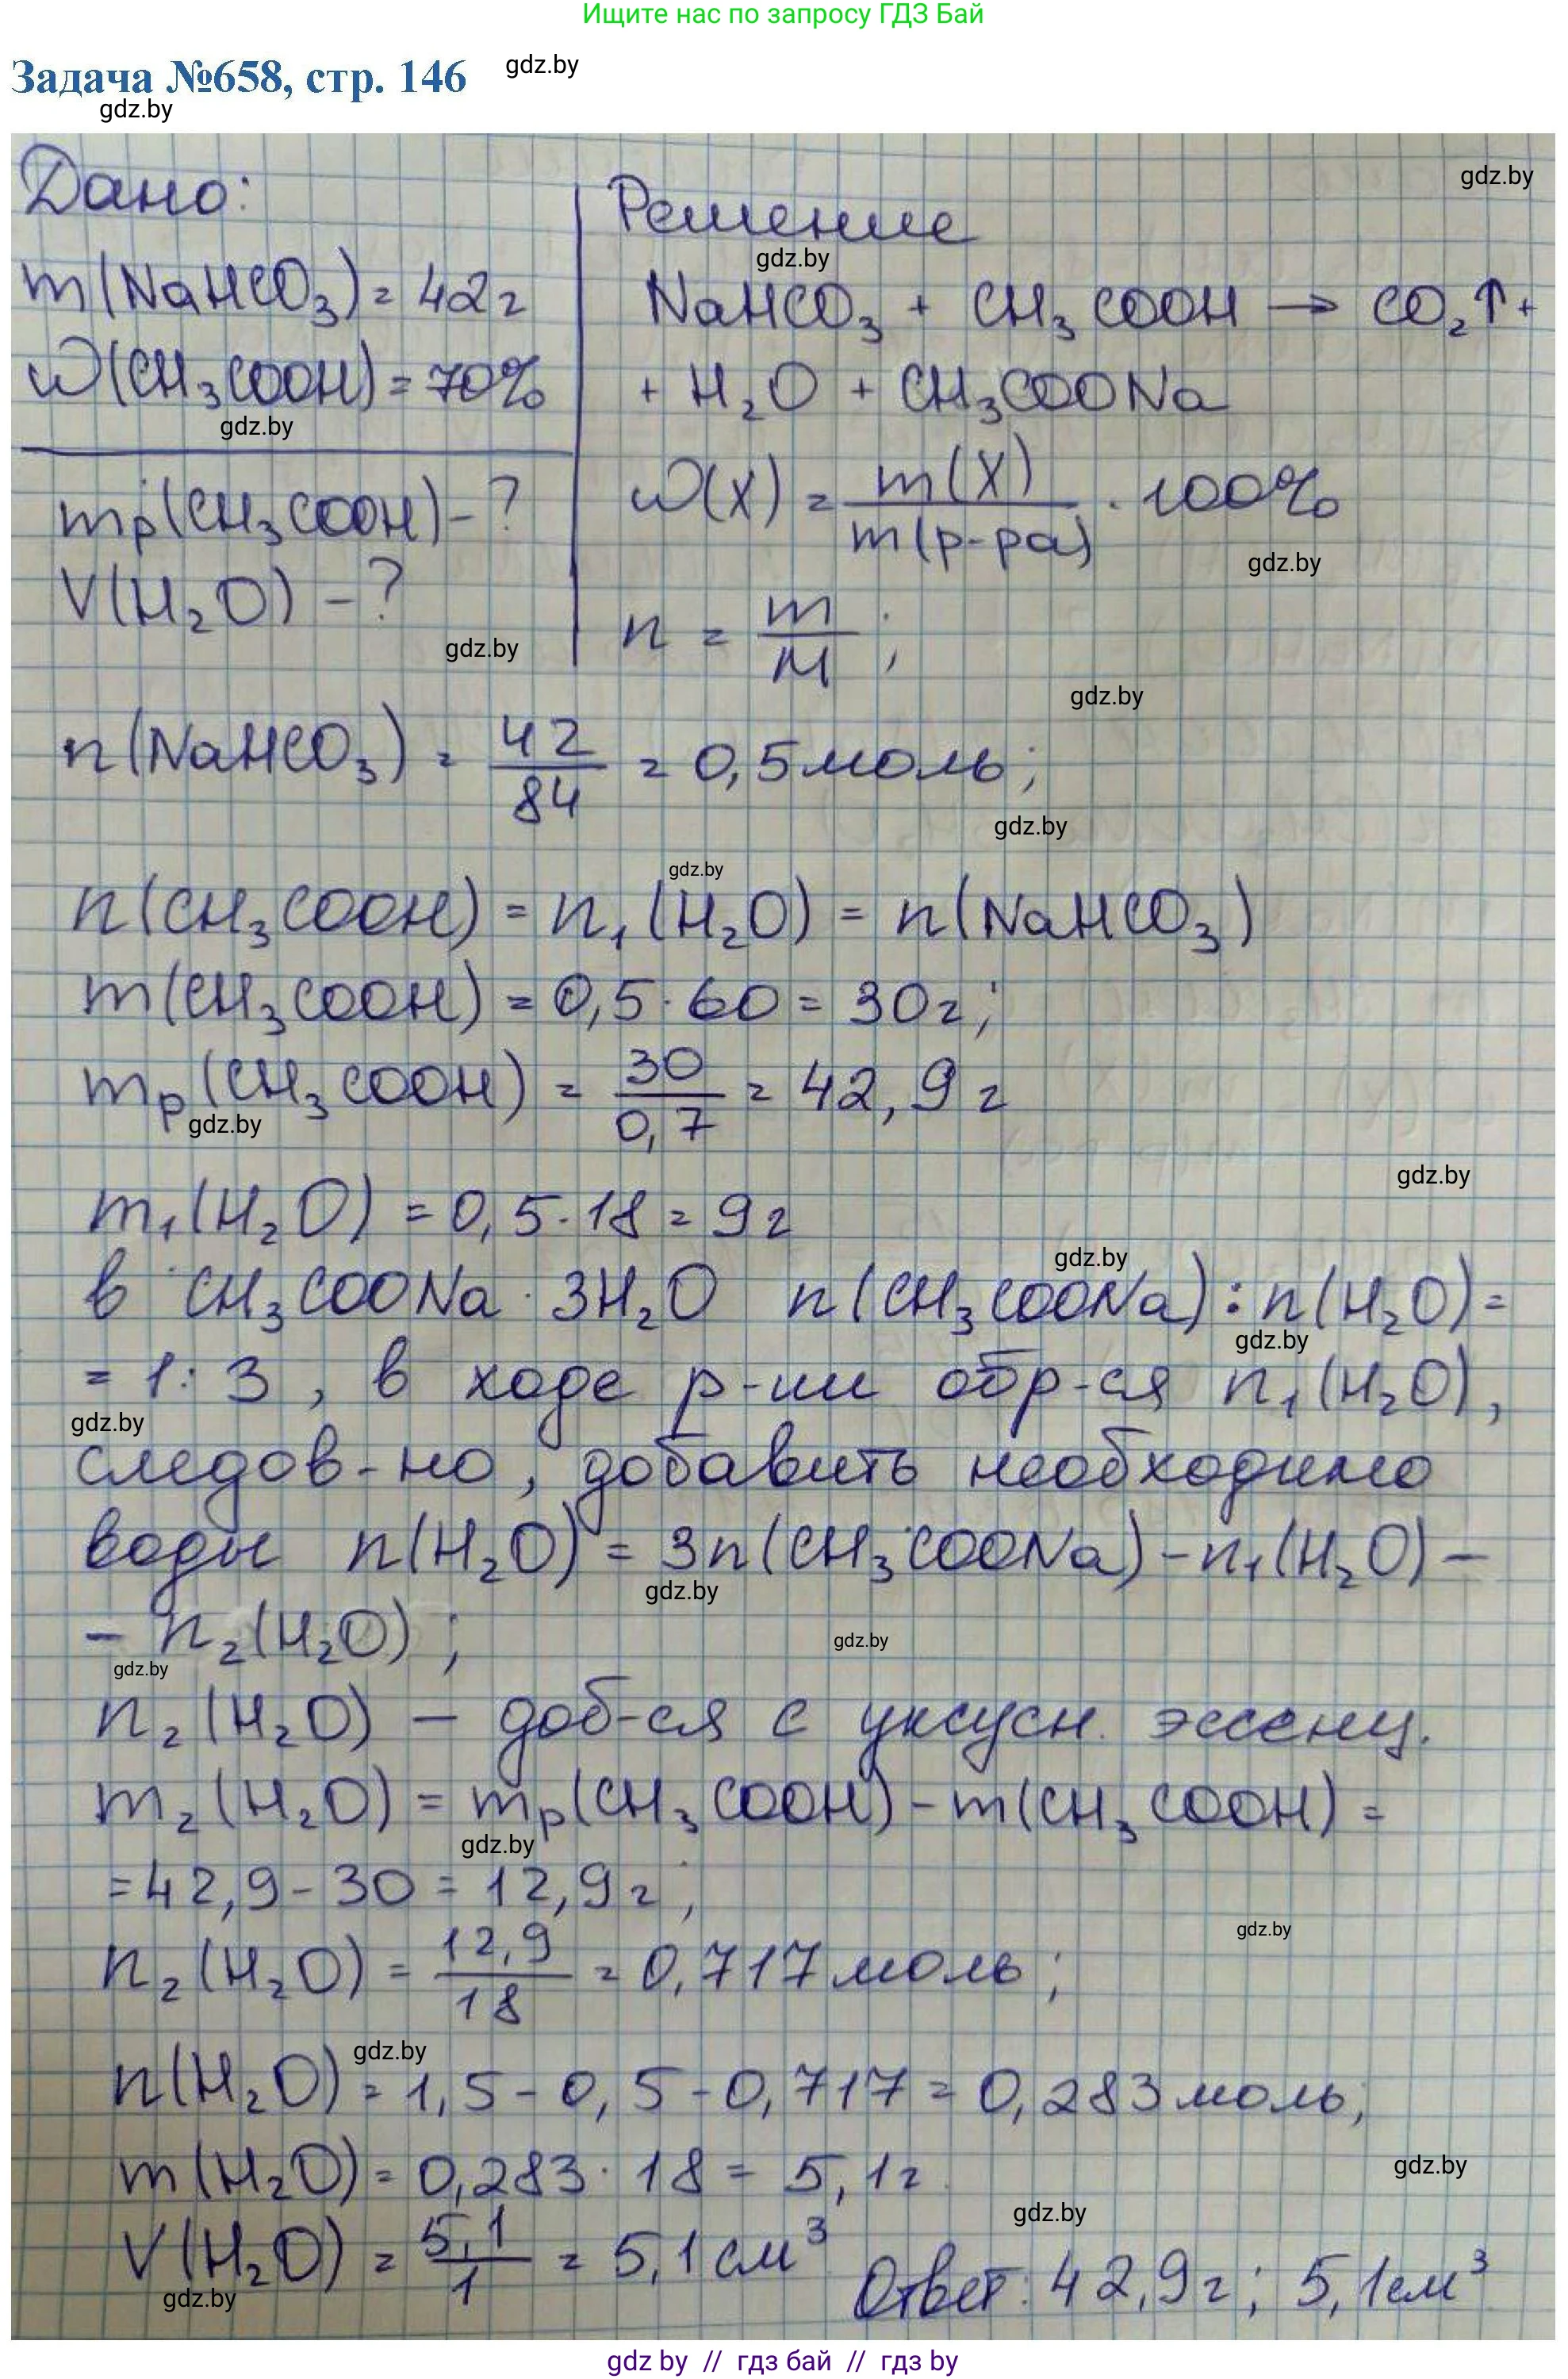 Ищите нас по запросу ГДЗ Бай
Задача №658, стр. 146
gdz.by
gdz.by
Дано:
m(NaHCO₃) = 42 г
ω(CH₃COOH) = 70%
gdz.by
mр(CH₃COOH) - ?
V(H₂O) - ?
gdz.by
gdz.by
Решение
gdz.by
NaHCO₃ + CH₃COOH → CO₂↑ +
+ H₂O + CH₃COONa
ω(X) = m(X) / m(р-ра) · 100%
gdz.by
n = m / M ;
gdz.by
n(NaHCO₃) = 42 / 84 = 0,5 моль;
gdz.by
gdz.by
n(CH₃COOH) = n₁(H₂O) = n(NaHCO₃)
m(CH₃COOH) = 0,5 · 60 = 30 г;
mр(CH₃COOH) = 30 / 0,7 = 42,9 г
gdz.by
gdz.by
m₁(H₂O) = 0,5 · 18 = 9 г
gdz.by
в CH₃COONa · 3H₂O n(CH₃COONa) : n(H₂O) =
gdz.by
= 1 : 3, в ходе р-ии обр-ся n₁(H₂O),
gdz.by
следов-но, добавить необходимо
воды n(H₂O) = 3n(CH₃COONa) - n₁(H₂O) -
gdz.by
- n₂(H₂O) ;
gdz.by
gdz.by
n₂(H₂O) - доб-ся с уксусн. эссенц.
m₂(H₂O) = mр(CH₃COOH) - m(CH₃COOH) =
gdz.by
= 42,9 - 30 = 12,9 г ;
gdz.by
n₂(H₂O) = 12,9 / 18 = 0,717 моль ;
gdz.by
n(H₂O) = 1,5 - 0,5 - 0,717 = 0,283 моль;
m(H₂O) = 0,283 · 18 = 5,1 г
gdz.by
gdz.by
V(H₂O) = 5,1 / 1 = 5,1 см³
gdz.by
Ответ: 42,9 г; 5,1 см³
gdz by // гдз бай // гдз by